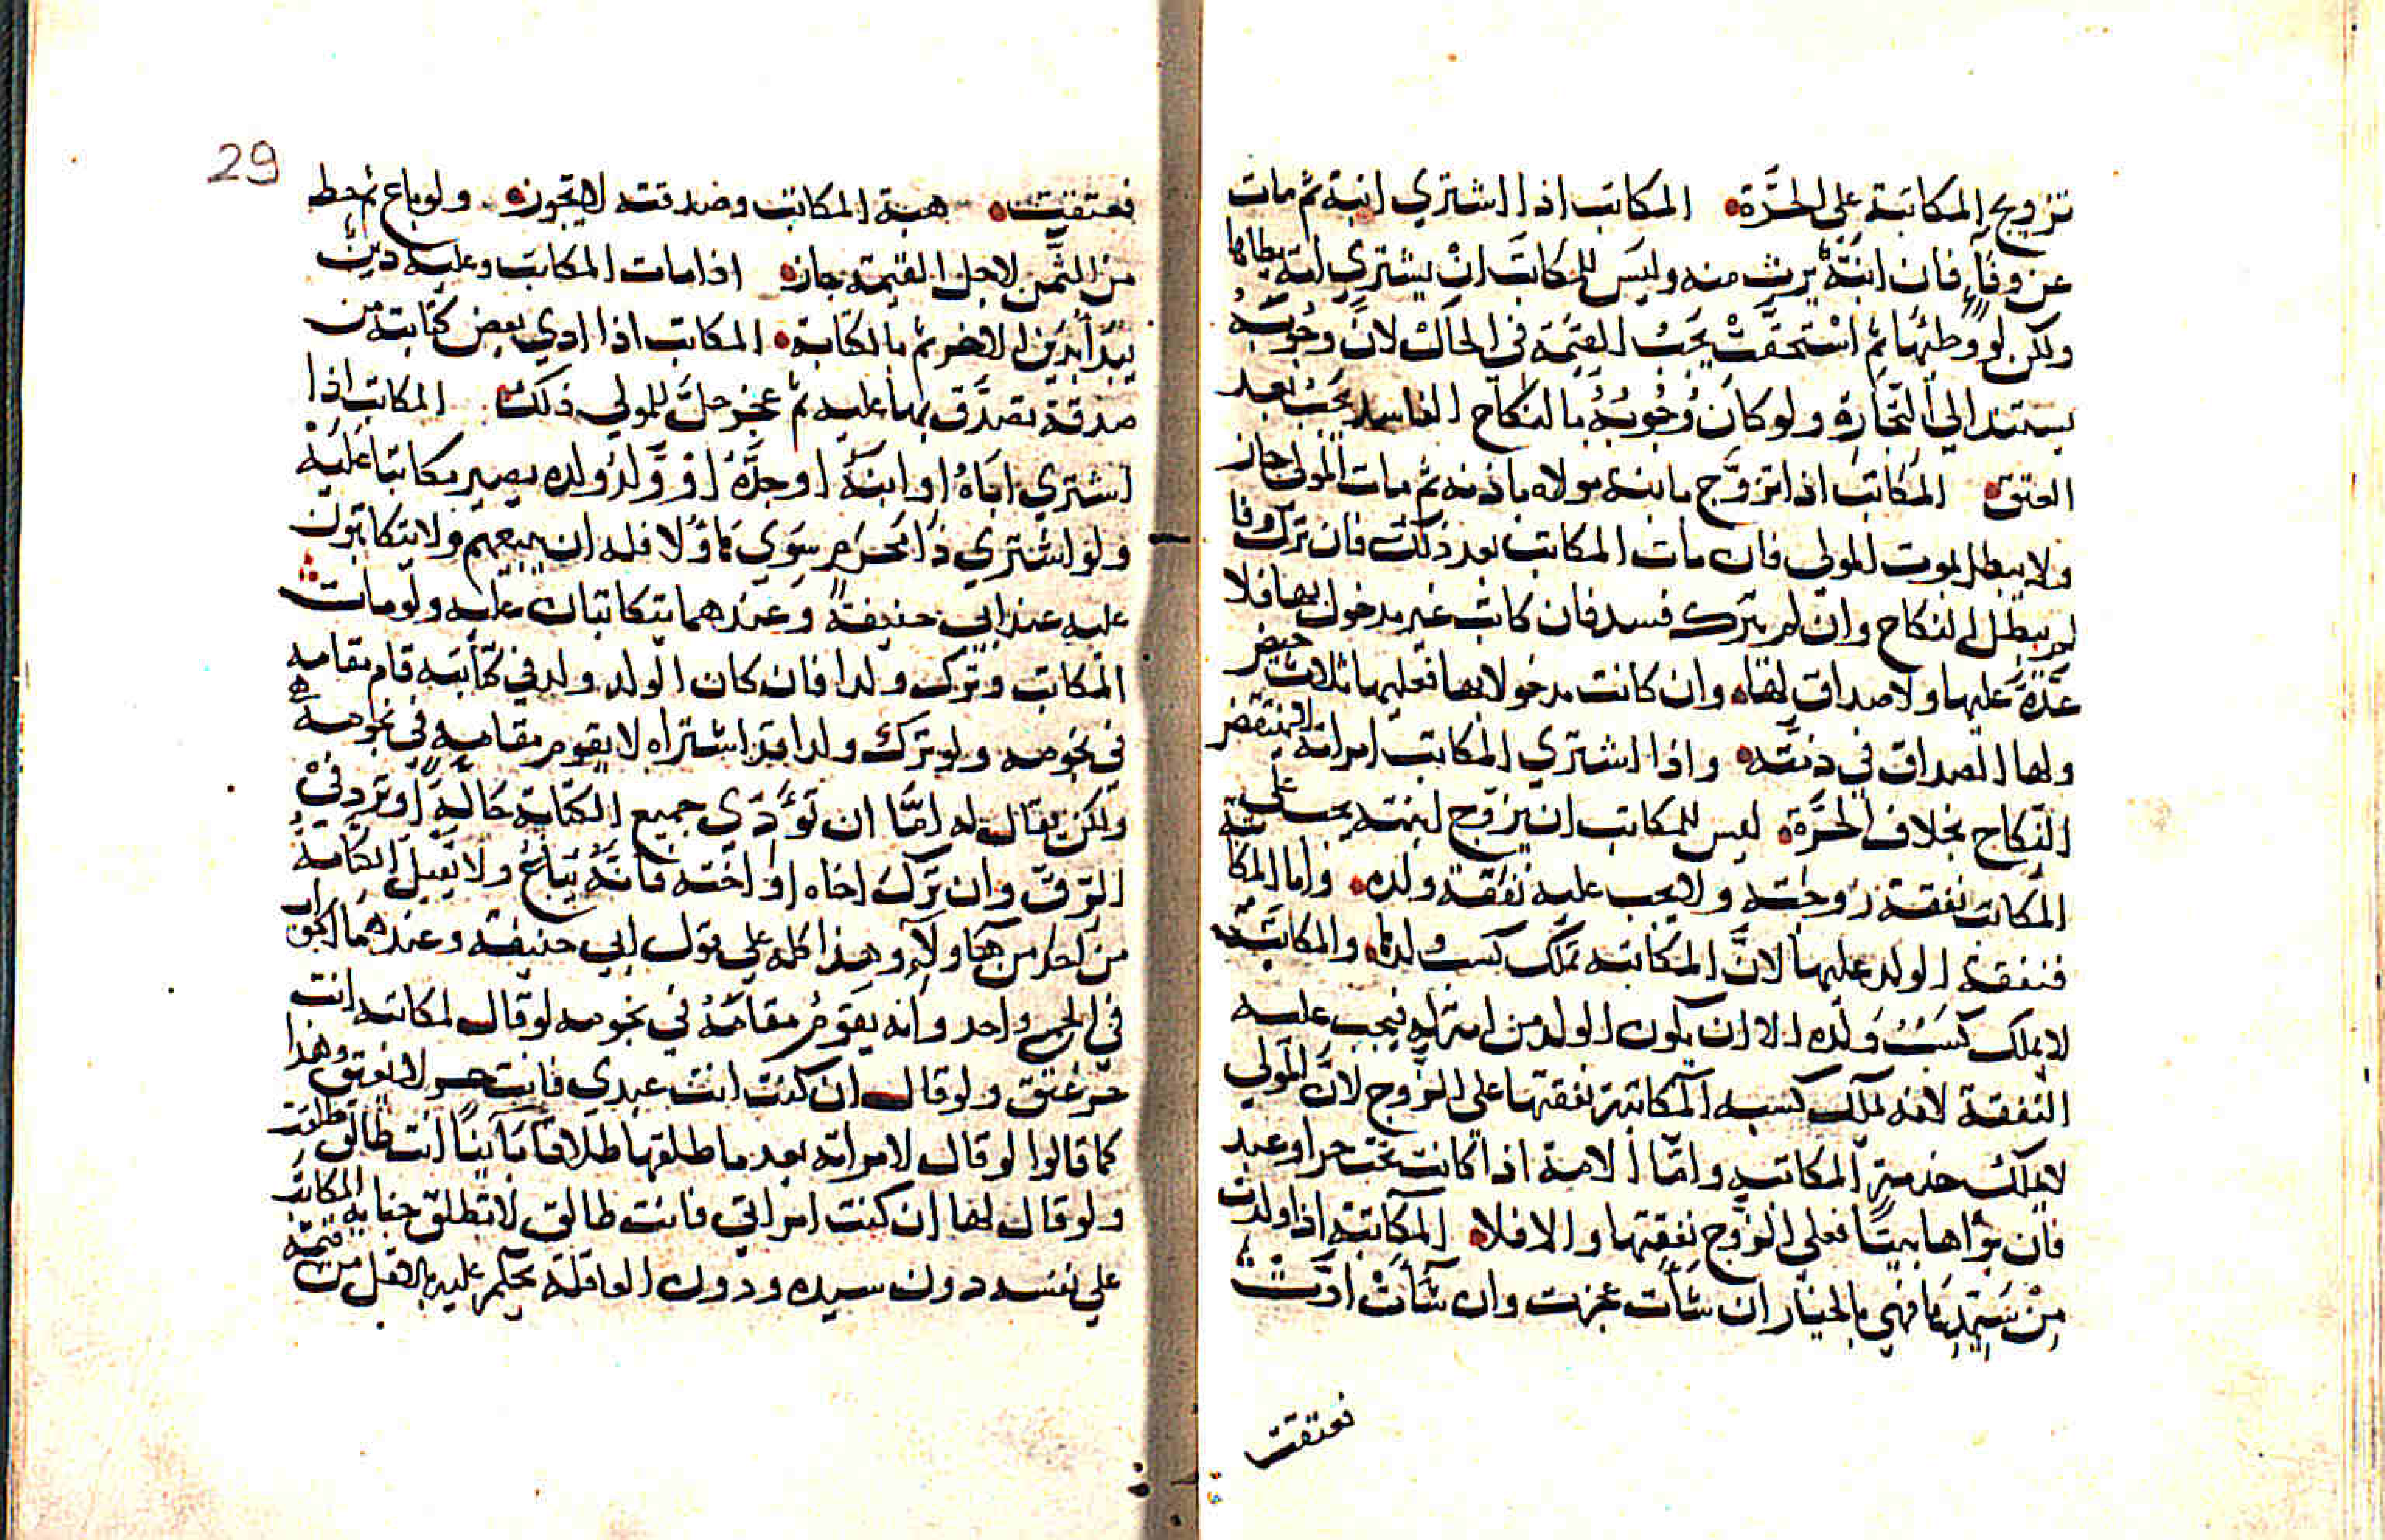 تزويج المكاتبة على الحرَّة المكاتب اذا اشتري ابنة ثم مات
عن وفاء فان ابنَهُ يرث منه وليس للمكاتب ان يشتري امة يطاها
ولكن لو وطئها ثم استحقت يجب القيمة في الحال لان وجوبه
يستند الي التجارة ولو كان وجوبه بالنكاح الفاسد يجب بعد
العتق المكاتب اذا تزوَّج بابنة مولاه باذنه ثم مات المولى جاز
ولا يبطل بموت المولى فان مات المكاتب بعد ذلك فان ترك وفا
لم يبطل النكاح وان لم يترك فسد فان كانت غير مدخول بها فلا
عدة عليها ولا صداق لها وان كانت مدخولا بها فعليها ثلاث حيض
ولها الصداق في ذمته واذا اشتري المكاتب امراته لا ينتقض
النكاح بخلاف الحرَّة ليس للمكاتب ان يزوج ابنته يجب على
المكاتب نفقة زوجته ولا يجب عليه نفقة ولده واما المكاتبة
فنفقة الولد عليها لانَّ المكاتبة تملك كسب ولدها والمكاتب
لا يملك كسب ولده الا ان يكون الولد من امته فيجب عليه
النفقة لانه يملك كسبه المكاتبة نفقتها على الزوج لانَّ المولي
لا يملك خدمة المكاتبه وامَّا الامة اذا كانت تحت حر او عبد
فان بوَّاها بيتا فعلى الزَّوج نفقتها والا فلا المكاتبة اذا ولدت
مِنْ سَيّدها فهي بالخيار ان شأت عجزت وان شأت ادَّت
فعتقت
29
فعتقت هبة المكاتب وصدقته لا تجوز ولو باع ثم حط
من الثَّمن لاجل القيمة جاز اذا مات المكاتب وعليه دين
يبدأ بدين الاخر ثم بالكتابة المكاتب اذا ادي بعض كتابته من
صدقة تصدَّق بها عليه ثم عجز حلَّ للمولي ذلك المكاتب اذا
اشتري اباهُ او ابنَهُ او جدَّهُ او وَلدُ ولده يصير مكاتبا عليه
ولو اشتري ذا محرم سِوَي هاوُلا فله ان يبيعهم ولا يتكاتبون
عليه عند ابي حنيفة وعندهما يتكاتبان عليه ولو مات
المكاتب وترك ولدا فان كان الولد ولد في كتابته قام مقامه
في نجومه ولو ترك ولدا قد اشتراه لا يقوم مقامه في نجومه
ولكن يقال له امَّا ان تؤدَّى جميع الكتابة حالةً او تردّ في
الرق وان ترك اخاه او اخته فانَّه يباع ولا تقبل الكتابة
من احد من هآولآء وهذا كله على قول ابي حنيفة وعندهما الجواب
في الجميع واحد وانه يقوم مقامَهُ في نجومه لو قال لمكاتبه انت
حرّ عتق ولو قال ان كنت انت عبدي فانت حر لا يعتق وهذا
كما قالوا لو قال لامراته بعد ما طلقها طلاقا بَاينًا انت طالق طلقت
ولو قال لها ان كنت امراتي فانت طالق لا تطلق جناية المكاتب
على نفسه دون سيده ودون العاقلة يحكم عليه بالاقل من قيمته